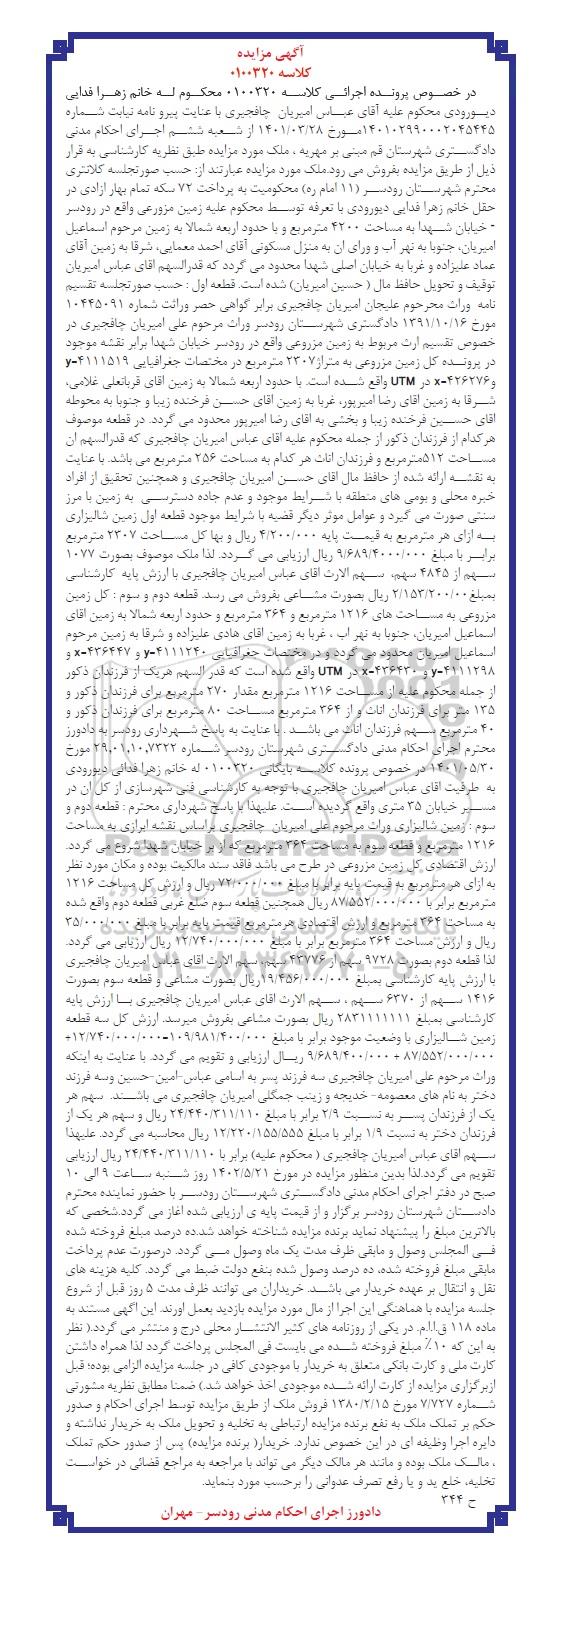 آگهی مزایده
کلاسه ۰۱۰۰۳۲۰
در خصوص پرونده اجرائی کلاسه ۰۱۰۰۳۲۰ محکوم له خانم زهرا فدایی
دیورودی محکوم علیه آقای عباس امیریان چافجیری با عنایت پیرو نامه نیابت شماره
۱۴۰۱۰۲۹۹۰۰۰۲۰۴۵۴۴۵مورخ ۱۴۰۱/۰۳/۲۸ از شعبه ششم اجرای احکام مدنی
دادگستری شهرستان قم مبنی بر مهریه ، ملک مورد مزایده طبق نظریه کارشناسی به قرار
ذیل از طریق مزایده بفروش می رود.ملک مورد مزایده عبارتند از: حسب صورتجلسه کلانتری
محترم شهرستان رودسر (۱۱ امام ره) محکومیت به پرداخت ۷۲ سکه تمام بهار ازادی در
حقل خانم زهرا فدایی دیورودی با تعرفه توسط محکوم علیه زمین مزورعی واقع در رودسر
- خیابان شهدا به مساحت ۴۲۰۰ مترمربع و با حدود اربعه شمالا به زمین مرحوم اسماعیل
امیریان، جنوبا به نهر آب و ورای ان به منزل مسکونی آقای احمد معمایی، شرقا به زمین آقای
عماد علیزاده و غربا به خیابان اصلی شهدا محدود می گردد که قدرالسهم اقای عباس امیریان
توقیف و تحویل حافظ مال ( حسین امیریان) شده است. قطعه اول : حسب صورتجلسه تقسیم
نامه وراث محرحوم علیجان امیریان چافجیری برابر گواهی حصر وراثت شماره ۱۰۴۴۵۰۹۱
مورخ ۱۳۹۱/۱۰/۱۶ دادگستری شهرستان رودسر وراث مرحوم علی امیریان چافجیری در
خصوص تقسیم ارث مربوط به زمین مزروعی واقع در رودسر خیابان شهدا برابر نقشه موجود
در پرونده کل زمین مزروعی به متراژ۲۳۰۷ مترمربع در مختصات جغرافیایی y-۴۱۱۱۵۱۹
وx-۴۲۶۲۷۶ در UTM واقع شده است. با حدود اربعه شمالا به زمین اقای قربانعلی غلامی،
شرقا به زمین اقای رضا امیرپور، غربا به زمین اقای حسن فرخنده زیبا و جنوبا به محوطه
اقای حسین فرخنده زیبا و بخشی به اقای رضا امیرپور محدود می گردد. در قطعه موصوف
هرکدام از فرزندان ذکور از جمله محکوم علیه اقای عباس امیریان چافجیری که قدرالسهم ان
مساحت ۵۱۲مترمربع و فرزندان اناث هر کدام به مساحت ۲۵۶ مترمربع می باشد. با عنایت
به نقشه ارائه شده از حافظ مال اقای حسن امیریان چافجیری و همچنین تحقیق از افراد
خبره محلی و بومی های منطقه با شرایط موجود و عدم جاده دسترسی به زمین با مرز
سنتی صورت می گیرد و عوامل موثر دیگر قضیه با شرایط موجود قطعه اول زمین شالیزاری
به ازای هر مترمربع به قیمت پایه ۴/۲۰۰/۰۰۰ ریال و بها کل مساحت ۲۳۰۷ مترمربع
برابر با مبلغ ۹/۶۸۹/۴۰۰۰/۰۰۰ ریال ارزیابی می گردد. لذا ملک موصوف بصورت ۱۰۷۷
سهم از ۴۸۴۵ سهم، سهم الارث اقای عباس امیریان چافجیری با ارزش پایه کارشناسی
بمبلغ۲/۱۵۳/۲۰۰/۰۰ ریال بصورت مشاعی بفروش می رسد. قطعه دوم و سوم : کل زمین
مزروعی به مساحت های ۱۲۱۶ مترمربع و ۳۶۴ مترمربع و حدود اربعه شمالا به زمین اقای
اسماعیل امیریان، جنوبا به نهر اب ، غربا به زمین اقای هادی علیزاده و شرقا به زمین مرحوم
اسماعیل امیریان محدود می گردد و در مختصات جغرافیایی y-۴۱۱۱۲۴۰ و x-۴۳۶۴۴۷ و
y-۴۱۱۱۲۹۸ و x-۴۳۶۴۳۰ در UTM واقع شده است که قدر السهم هریک از فرزندان ذکور
از جمله محکوم علیه از مساحت ۱۲۱۶ مترمربع مقدار ۲۷۰ مترمربع برای فرزندان ذکور و
۱۳۵ متر برای فرزندان اناث و از ۳۶۴ مترمربع مساحت ۸۰ مترمربع برای فرزندان ذکور و
۴۰ مترمربع سهم فرزندان اناث می باشد . با عنایت به پاسخ شهرداری رودسر به دادورز
محترم اجرای احکام مدنی دادگستری شهرستان رودسر شماره ۲۹,۰۱,۱۰,۷۳۲۲ مورخ
۱۴۰۱/۰۵/۳۰ در خصوص پرونده کلاسه بایگانی ۰۱۰۰۳۲۰ له خانم زهرا فدائی دیورودی
به طرفیت اقای عباس امیریان چافجیری با توجه به کارشناسی فنی شهرسازی از کل ان در
مسیر خیابان ۳۵ متری واقع گردیده است. علیهذا با پاسخ شهرداری محترم : قطعه دوم و
سوم : زمین شالیزاری وراث مرحوم علی امیریان چافجیری براساس نقشه ابرازی به مساحت
۱۲۱۶ مترمربع و قطعه سوم به مساحت ۳۶۴ مترمربع که از بر خیابان شهدا شروع می گردد.
ارزش اقتصادی کل زمین مزروعی در طرح می باشد فاقد سند مالکیت بوده و مکان مورد نظر
به ازای هر مترمربع به قیمت پایه برابر با مبلغ ۷۲/۰۰۰/۰۰۰ ریال و ارزش کل مساحت ۱۲۱۶
مترمربع برابر با ۸۷/۵۵۲/۰۰۰/۰۰۰ ریال همچنین قطعه سوم ضلع غربی قطعه دوم واقع شده
به مساحت ۳۶۴ مترمربع و ارزش اقتصادی هرمترمربع قیمت پایه برابر با مبلغ ۳۵/۰۰۰/۰۰۰
ریال و ارزش مساحت ۳۶۴ مترمربع برابر با مبلغ ۱۲/۷۴۰/۰۰۰/۰۰۰ ریال ارزیابی می گردد.
لذا قطعه دوم بصورت ۹۷۲۸ سهم از ۴۳۷۷۶ سهم، سهم الارث اقای عباس امیریان چافجیری
با ارزش پایه کارشناسی بمبلغ ۱۹/۴۵۶/۰۰۰/۰۰۰ریال بصورت مشاعی و قطعه سوم بصورت
۱۴۱۶ سهم از ۶۳۷۰ سهم ، سهم الارث اقای عباس امیریان چافجیری با ارزش پایه
کارشناسی بمبلغ ۲۸۳۱۱۱۱۱۱۱ ریال بصورت مشاعی بفروش میرسد. ارزش کل سه قطعه
زمین شالیزاری با وضعیت موجود برابر با مبلغ ۱۰۹/۹۸۱/۴۰۰/۰۰۰-۱۲/۷۴۰/۰۰۰/۰۰۰+
۸۷/۵۵۲/۰۰۰/۰۰۰ + ۹/۶۸۹/۴۰۰/۰۰۰ ریال ارزیابی و تقویم می گردد. با عنایت به اینکه
وراث مرحوم علی امیریان چافجیری سه فرزند پسر به اسامی عباس-امین-حسین وسه فرزند
دختر به نام های معصومه- خدیجه و زینب جمگلی امیریان چافجیری می باشند. سهم هر
یک از فرزندان پسر به نسبت ۲/۹ برابر با مبلغ ۲۴/۴۴۰/۳۱۱/۱۱۰ ریال و سهم هر یک از
فرزندان دختر به نسبت ۱/۹ برابر با مبلغ ۱۲/۲۲۰/۱۵۵/۵۵۵ ریال محاسبه می گردد. علیهذا
سهم اقای عباس امیریان چافجیری ( محکوم علیه) برابر با ۲۴/۴۴۰/۳۱۱/۱۱۰ ریال ارزیابی
تقویم می گردد.لذا بدین منظور مزایده در مورخ ۱۴۰۲/۵/۲۱ روز شنبه ساعت ۹ الی ۱۰
صبح در دفتر اجرای احکام مدنی دادگستری شهرستان رودسر با حضور نماینده محترم
دادستان شهرستان رودسر برگزار و از قیمت پایه ی ارزیابی شده اغاز می گردد.شخصی که
بالاترین مبلغ را پیشنهاد نماید برنده مزایده شناخته خواهد شد.ده درصد مبلغ فروخته شده
فی المجلس وصول و مابقی ظرف مدت یک ماه وصول می گردد. درصورت عدم پرداخت
مابقی مبلغ فروخته شده، ده درصد وصول شده بنفع دولت ضبط می گردد. کلیه هزینه های
نقل و انتقال بر عهده خریدار می باشد. خریداران می توانند ظرف مدت ۵ روز قبل از شروع
جلسه مزایده با هماهنگی این اجرا از مال مورد مزایده بازدید بعمل اورند. این اگهی مستند به
ماده ۱۱۸ ق.ا.ا.م. در یکی از روزنامه های کثیر الانتشار محلی درج و منتشر می گردد.( نظر
به این که ۱۰٪ مبلغ فروخته شده می بایست فی المجلس پرداخت گردد لذا همراه داشتن
کارت ملی و کارت بانکی متعلق به خریدار با موجودی کافی در جلسه مزایده الزامی بوده؛ قبل
ازبرگزاری مزایده از کارت ارائه شده موجودی اخذ خواهد شد.) ضمنا مطابق نظریه مشورتی
شماره ۷/۷۲۷ مورخ ۱۳۸۰/۲/۱۵ فروش ملک از طریق مزایده توسط اجرای احکام و صدور
حکم بر تملک ملک به نفع برنده مزایده ارتباطی به تخلیه و تحویل ملک به خریدار نداشته و
دایره اجرا وظیفه ای در این خصوص ندارد. خریدار( برنده مزایده) پس از صدور حکم تملک
، مالک ملک بوده و مانند هر مالک دیگر می تواند با مراجعه به مراجع قضائی در خواست
تخلیه، خلع ید و یا رفع تصرف عدوانی را برحسب مورد بنماید.
ح ۳۴۴
دادورز اجرای احکام مدنی رودسر- مهران